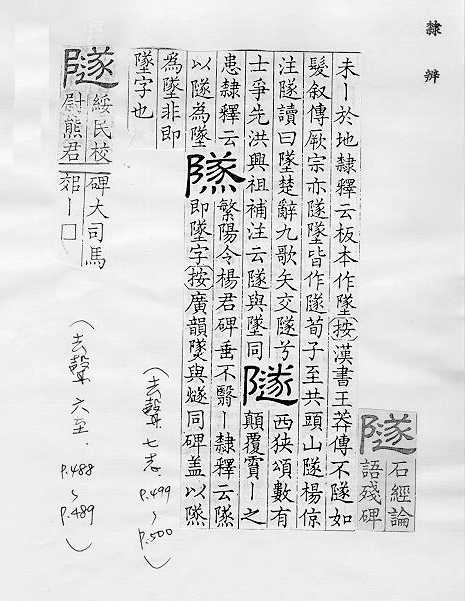 隸辨
隧 石經論
語殘碑
未ー於地隸釋云板本作墜按漢書王莽傳不隧如
髮叙傳厥宗亦隧墜皆作隧荀子至共頭山隧楊倞
注隧讀曰墜楚辭九歌矢交隧兮 隧 西狹頌數有
士爭先洪興祖補注云隧與墜同 顛覆霣ー之
患隸釋云 隊 繁陽令楊君碑垂不翳ー隸釋云隊
以隧為墜 即墜字按廣韻墜與燧同碑盖以隊
為墜非即
墜字也
隧 綏民校 碑大司馬
尉熊君 ー□
(去聲七 P.499~P.500)
(去聲六至. P.488~P.489)